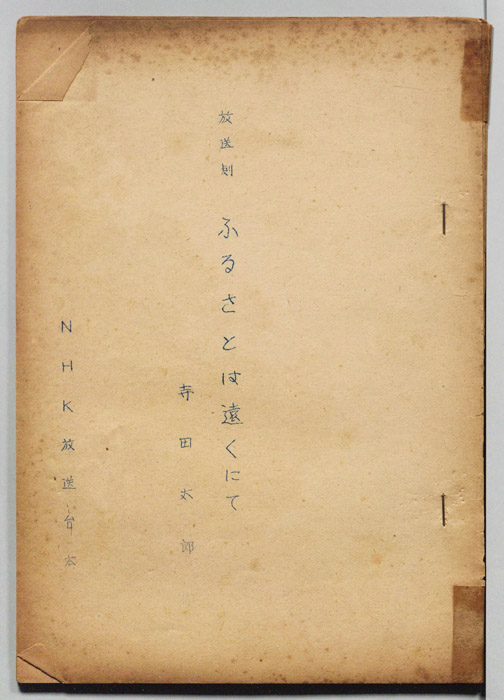 放送劇 ふるさとは遠くにて
寺田太郎
NHK放送台本